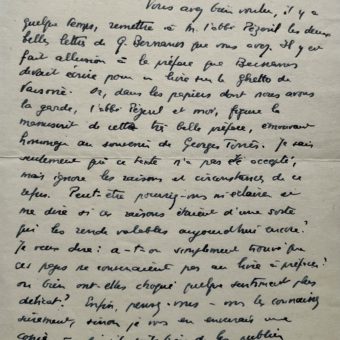 Vous avez bien voulu, il y a
quelque temps, remettre à M. l'abbé Pézeril les deux
belles lettres de G. Bernanos que vous avez. Il y est
fait allusion à la préface que Bernanos
devait écrire pour un livre sur le ghetto de
Varsovie. Or, dans les papiers dont nous avons
la garde, l'abbé Pézeril et moi, figure le
manuscrit de cette très belle préface, émouvant
hommage au souvenir de Georges Torrès. Je sais
seulement que ce texte n'a pas été accepté,
mais ignore les raisons et circonstances de ce
refus. Peut-être pourriez-vous m'éclairer et
me dire si ces raisons étaient d'une sorte
qui les rende valables aujourd'hui encore?
Je veux dire: a-t-on simplement trouvé que
ces pages ne convenaient pas au livre à préfacer?
ou bien ont-elles choqué quelque sentiment plus
délicat? Enfin, pensez-vous
sûrement, sinon je vous en enverrais une
copie